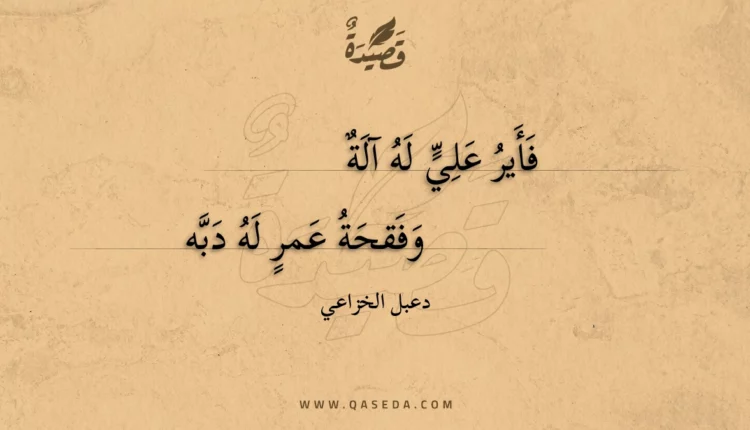 قَصِيدَةٌ
فَأَيرُ عَلِيٍّ لَهُ آلَةٌ
وَفَقحَةُ عَمرٍ لَهُ دَبَّه
دعبل الخزاعي
WWW.QASEDA.COM